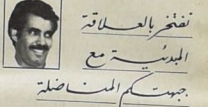 نفتخر بالعلاقة
المبدئية مع
جبهتكم المناضلة